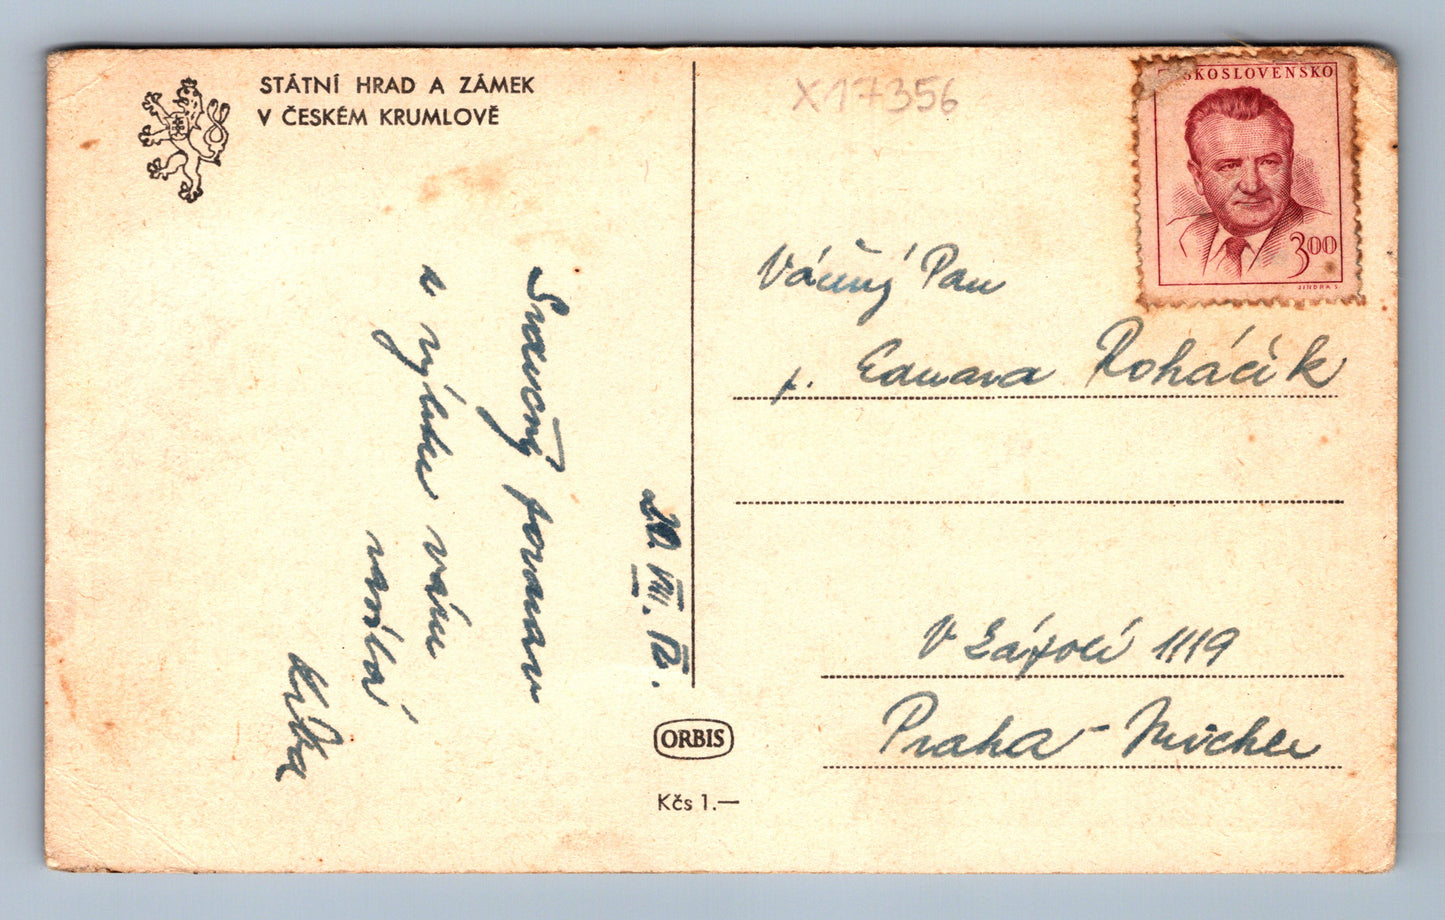 STÁTNÍ HRAD A ZÁMEK
V ČESKÉM KRUMLOVĚ
X17356
ESKOSLOVENSKO
3 00
JINDRA S
Srdečný pozdrav
z výletu vám
zasílá
20. VIII.
Vážený Pan
p. Eduard Roháčík
V Zápolí 1119
Praha - Michle
ORBIS
Kčs 1.—